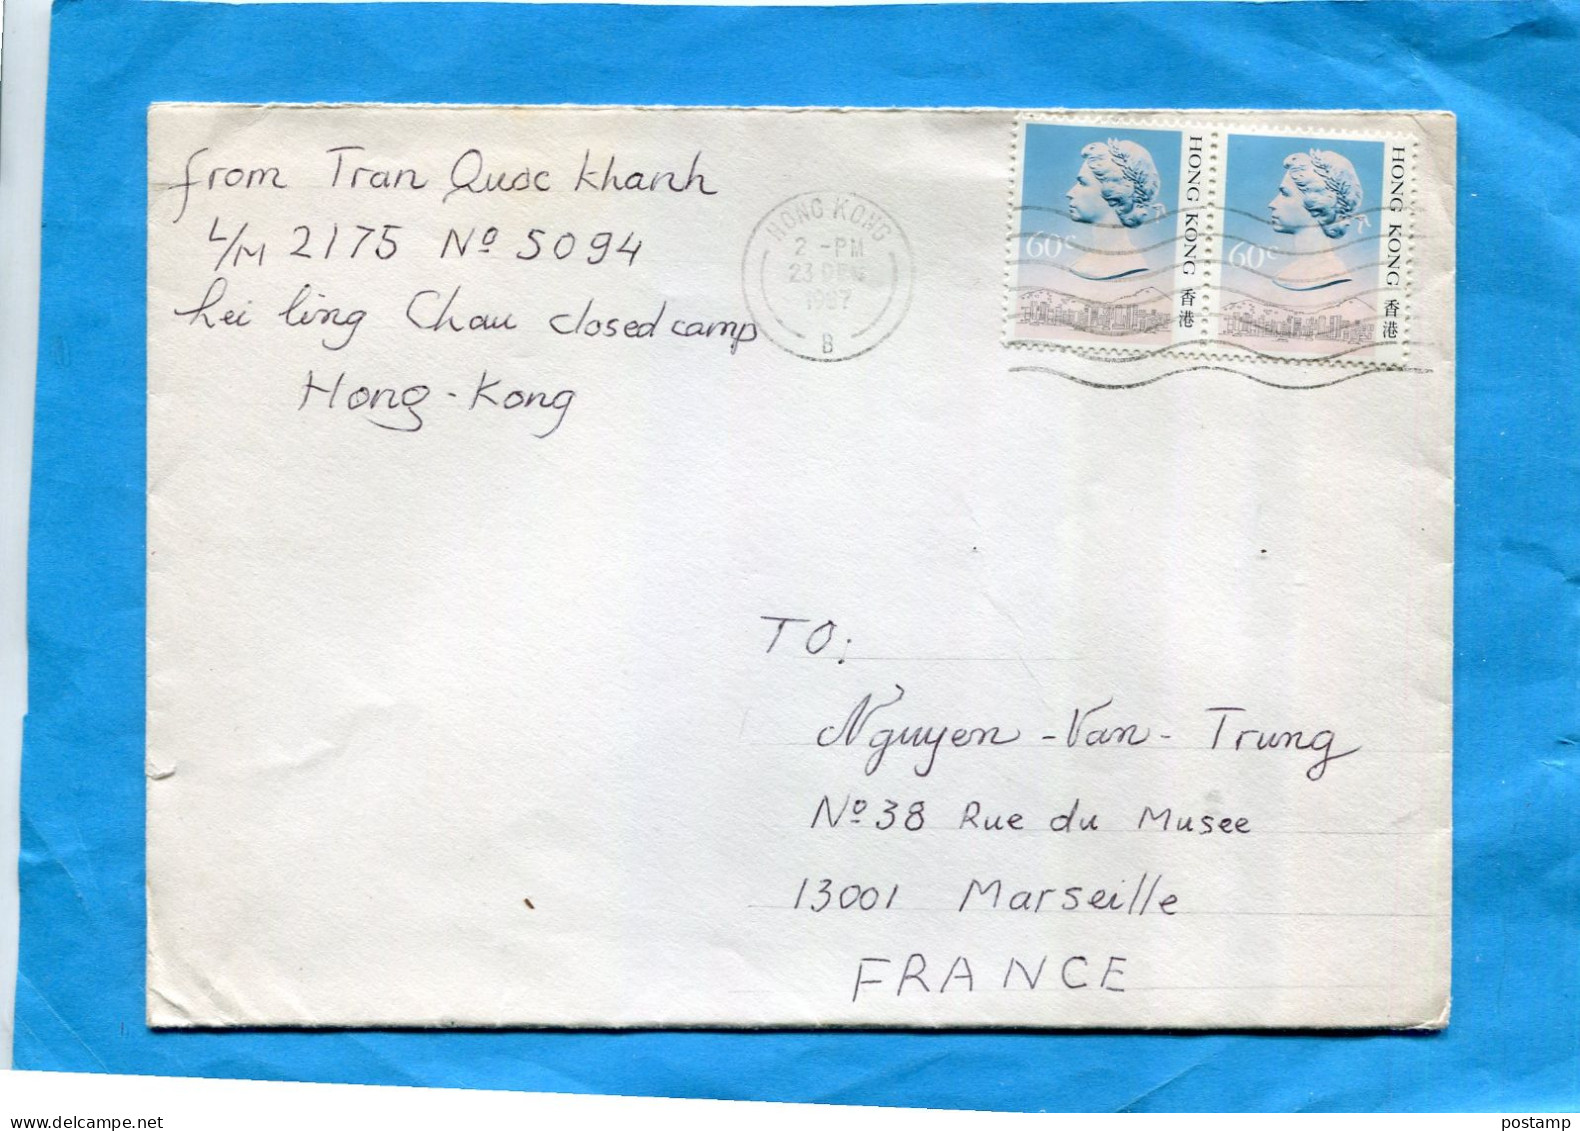 from Tran Quoc Khanh
L/M 2175 Nº 5094
hei ling Chau closed camp
Hong-Kong
HONG KONG
2 -PM
23 DEC
1987
B
60c
HONG KONG 香港
60c
HONG KONG 香港
TO:
Nguyen -Van- Trung
Nº 38 Rue du Musee
13001 Marseille
FRANCE
postamp